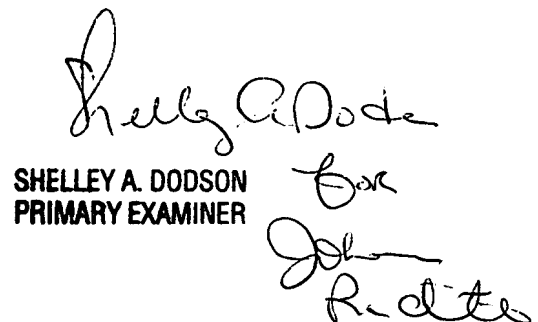 Shelley A. Dodson
SHELLEY A. DODSON
PRIMARY EXAMINER
for
John